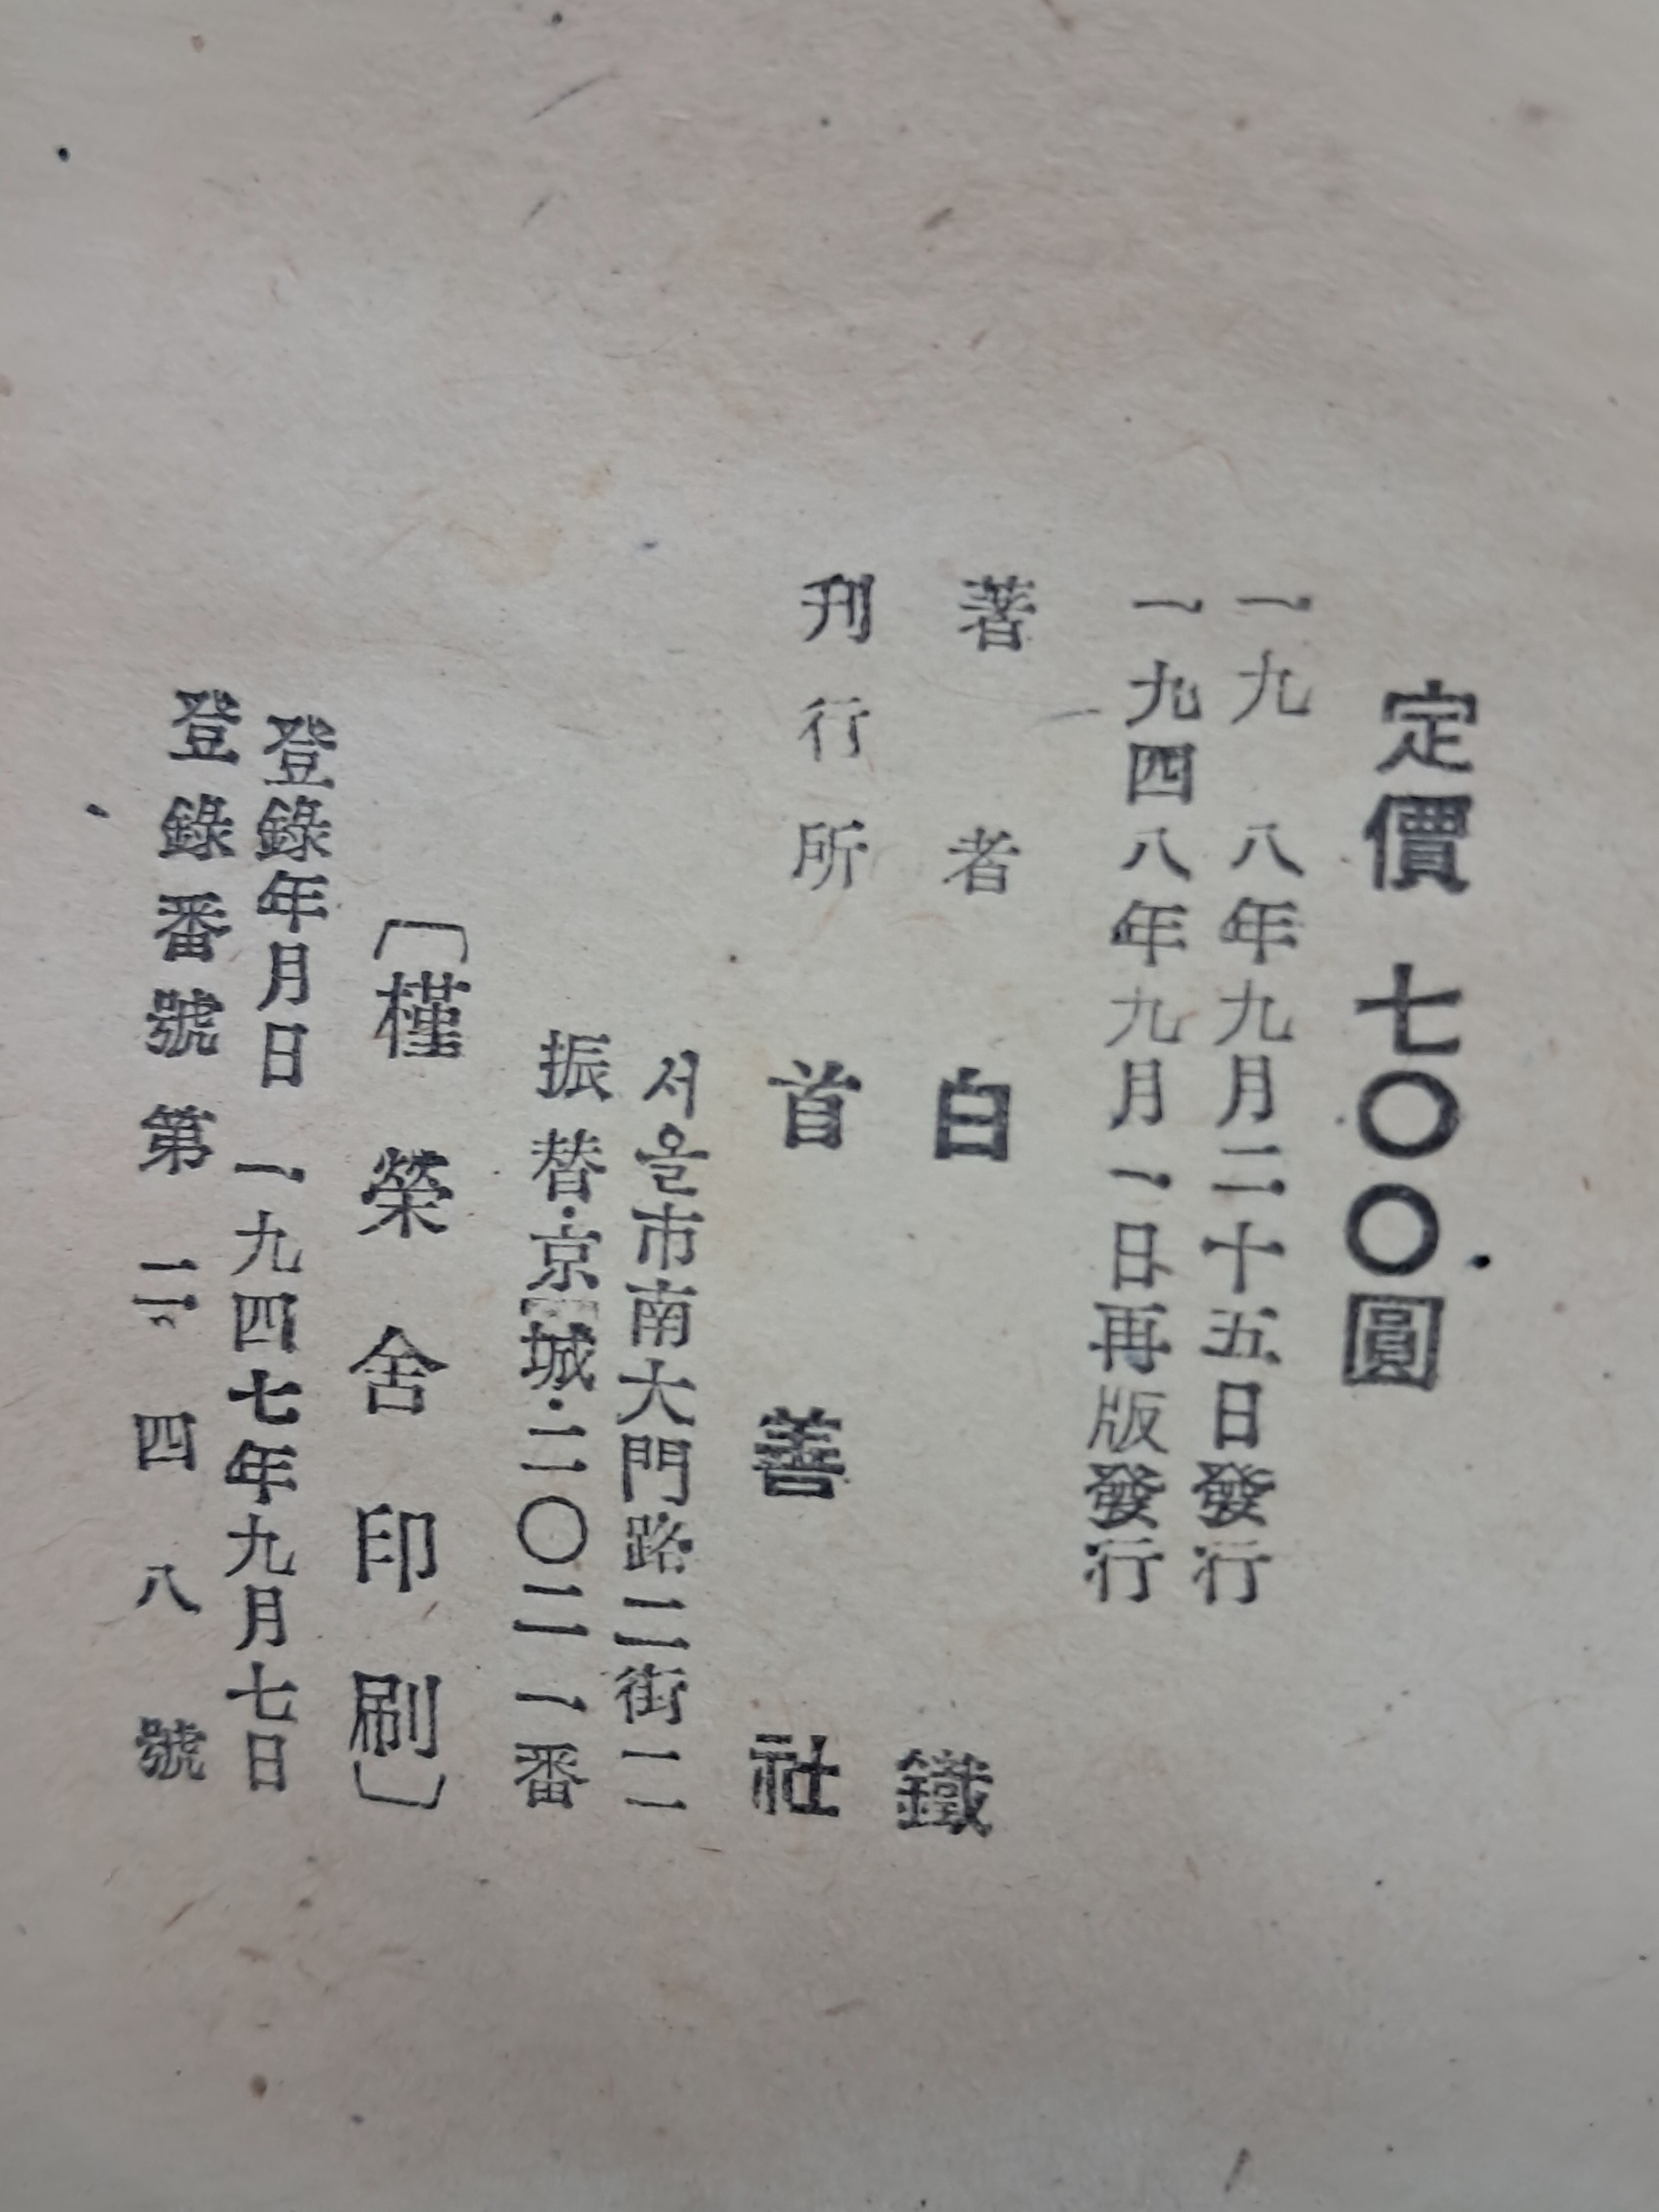 定價 七〇〇圓
一九 八年九月二十五日發行
一九四八年九月一日再版發行
著者 白鐵
刊行所 首善社
서울市南大門路二街一二
振替·京城·二〇二一一番
〔槿榮舍印刷〕
登錄年月日 一九四七年九月七日
登錄番號第 四八號